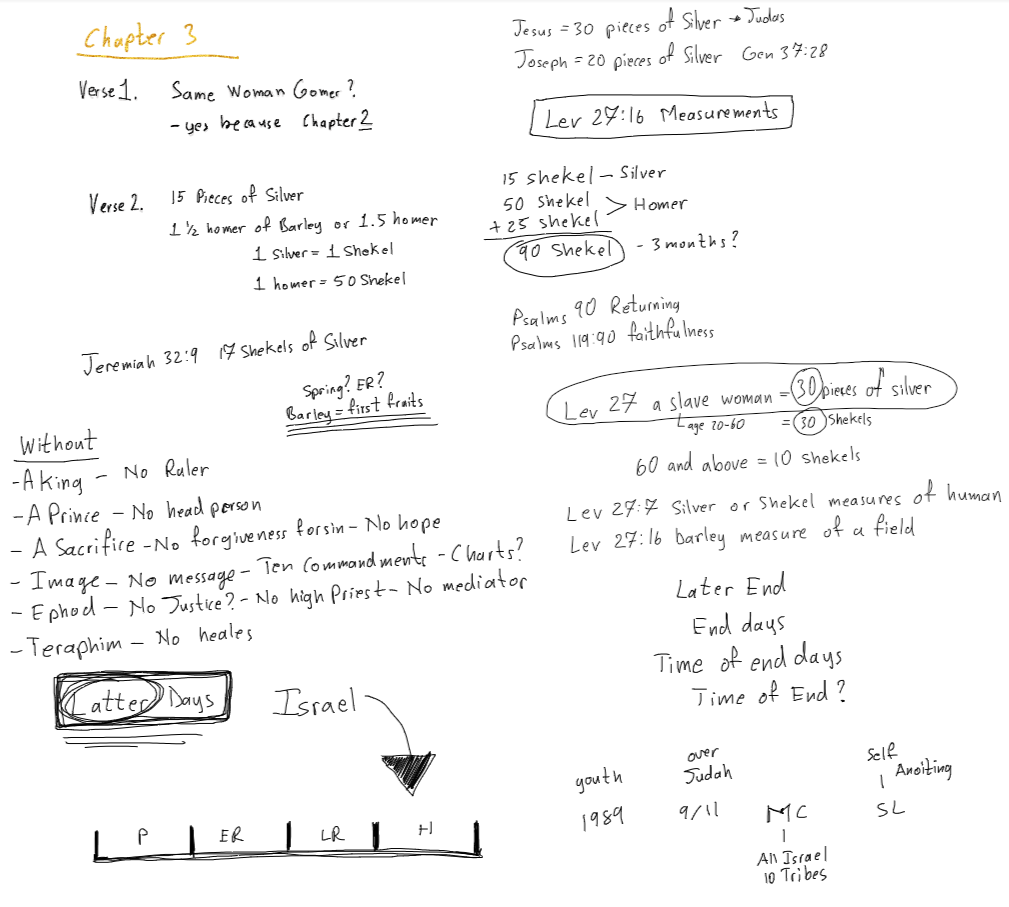 Chapter 3
Verse 1. Same Woman Gomer?
- yes because Chapter 2
Verse 2. 15 Pieces of Silver
1 ½ homer of Barley or 1.5 homer
1 Silver = 1 Shekel
1 homer = 50 Shekel
Jeremiah 32:9 17 Shekels of Silver
Spring? ER?
Barley = first fruits
Without
- A king - No Ruler
- A Prince - No head person
- A Sacrifice - No forgiveness for sin - No hope
- Image - No message - Ten Commandments - Charts?
- Ephod - No Justice? - No high Priest - No mediator
- Teraphim - No heales
Latter Days
Israel
P ER LR H
Jesus = 30 pieces of Silver → Judas
Joseph = 20 pieces of Silver Gen 37:28
Lev 27:16 Measurements
15 shekel - Silver
50 shekel
+ 25 shekel > Homer
90 Shekel - 3 months?
Psalms 90 Returning
Psalms 119:90 faithfulness
Lev 27 a slave woman = 30 pieces of silver
age 20-60 = 30 Shekels
60 and above = 10 shekels
Lev 27:7 Silver or Shekel measures of human
Lev 27:16 barley measure of a field
Later End
End days
Time of end days
Time of End?
youth
1989
over
Judah
9/11
MC
All Israel
10 Tribes
Self
Anoiting
SL